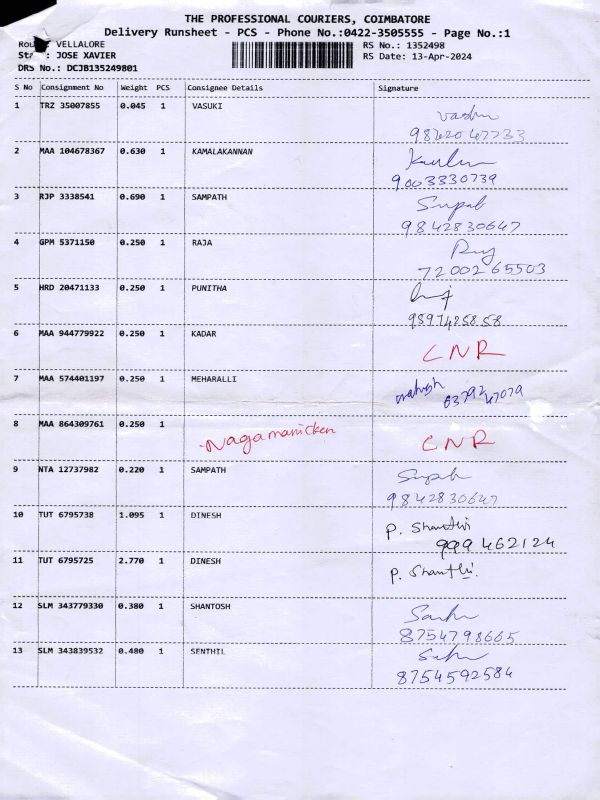 THE PROFESSIONAL COURIERS, COIMBATORE
Delivery Runsheet - PCS - Phone No.:0422-3505555 - Page No.:1
VELLALORE
RS No.: 1352498
: JOSE XAVIER
RS Date: 13-Apr-2024
DRS No.: DCJB135249801
S No Consignment No Weight PCS Consignee Details Signature
1 TRZ 35007855 0.045 1 VASUKI
9842047233
2 MAA 104678367 0.630 1 KAMALAKANNAN
9003330739
3 RJP 3338541 0.690 1 SAMPATH
9842830647
4 GPM 5371150 0.250 1 RAJA
Raj
7200265503
5 HRD 20471133 0.250 1 PUNITHA
6 MAA 944779922 0.250 1 KADAR
CNR
7 MAA 574401197 0.250 1 MEHARALLI
8 MAA 864309761 0.250 1 Nagamanicken CNR
9 NTA 12737982 0.220 1 SAMPATH
9842830647
10 TUT 6795738 1.095 1 DINESH
P. Shanthi
999 462124
11 TUT 6795725 2.770 1 DINESH
P. Shanthi.
12 SLM 343779330 0.380 1 SHANTOSH
8754798665
13 SLM 343839532 0.480 1 SENTHIL
8754592584